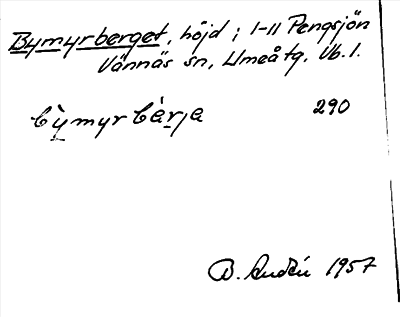 Bymyrberget, höjd; 1-11 Pengsjön
Vännäs sn, Umeå tg. Vb. l.
bỳmyrbàrja 290
1957